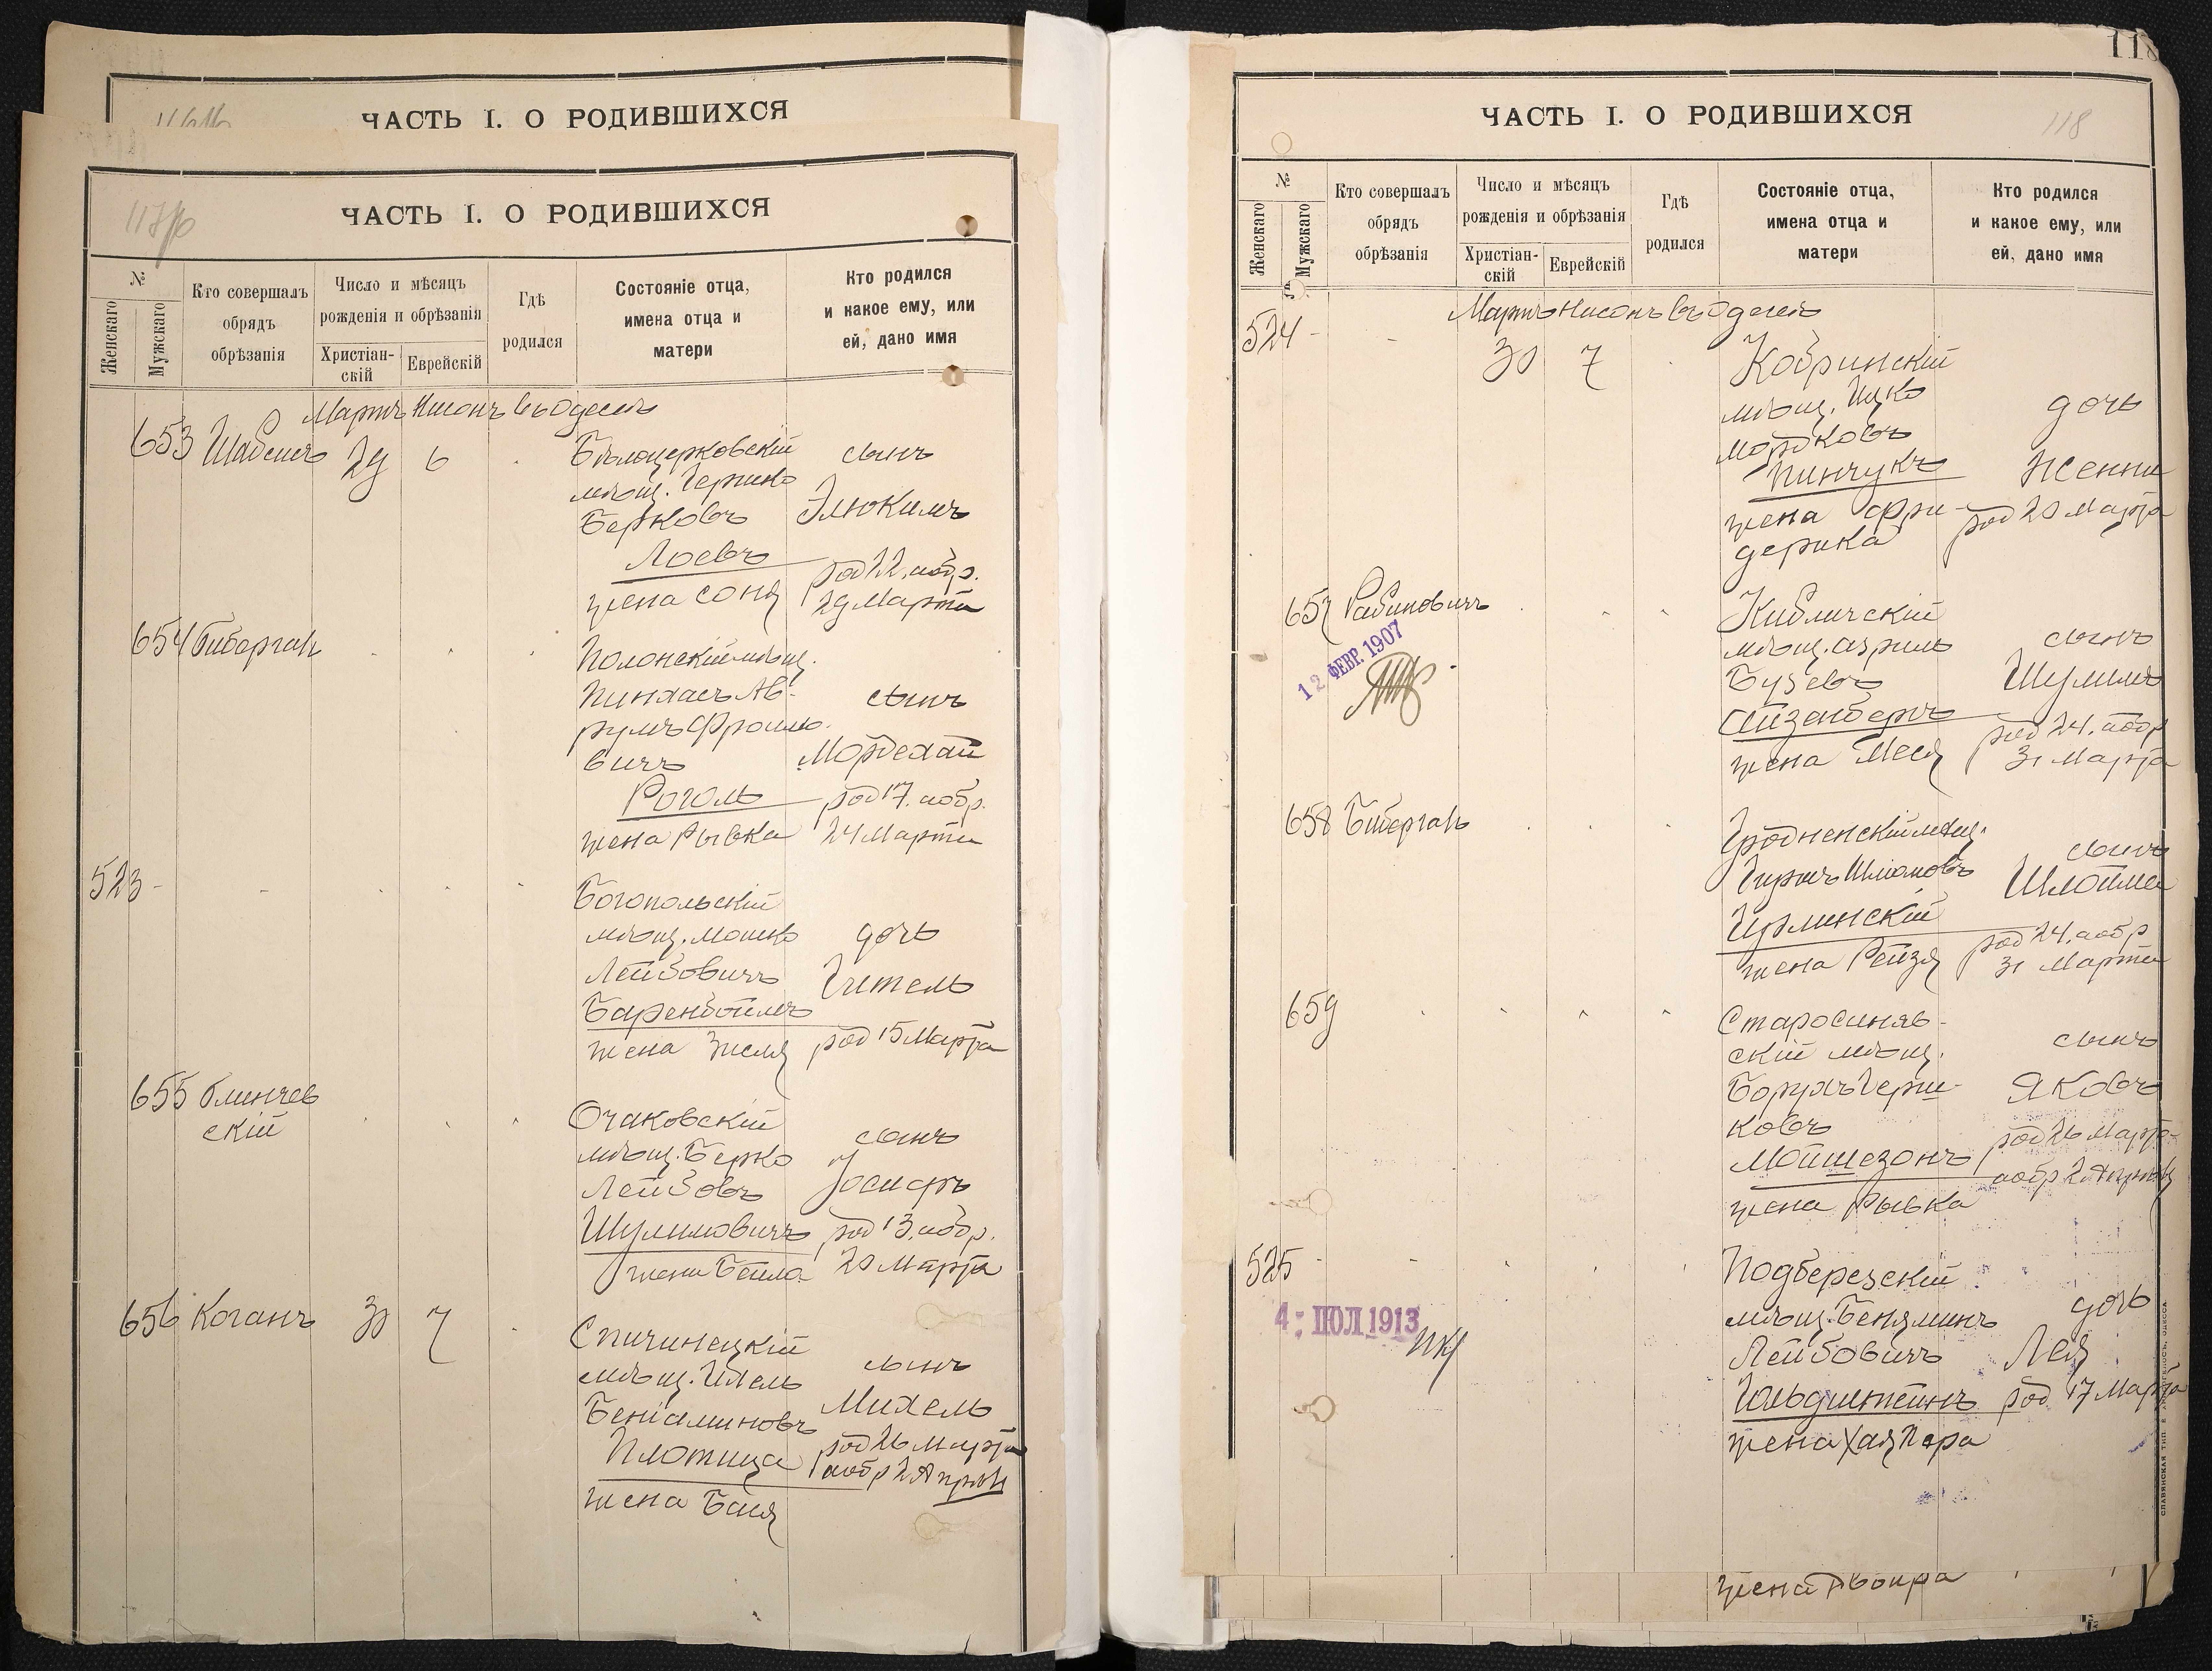 ЧАСТЬ I. О РОДИВШИХСЯ
117 об
ЧАСТЬ I. О РОДИВШИХСЯ
№
Женскаго
Мужскаго
Кто совершалъ
обрядъ
обрѣзанія
Число и мѣсяцъ
рожденія и обрѣзанія
Христіан-
скій
Еврейскій
Гдѣ
родился
Состояніе отца,
имена отца и
матери
Кто родился
и какое ему, или
ей, дано имя
Мартъ Нисонъ въ Одессѣ
653 Шабсисъ 29 6
Бѣлоцерковскій
мѣщ. Гершко
Берковъ
Лоевъ
жена Соня
сынъ
Элюкимъ
род 22, а обр.
29 Марта
654 Биберганъ
Полонскій мѣщ.
Пинхасъ Ав-
румъ Фроимо-
вичъ
Роголь
жена Рывка
сынъ
Мордехай
род 17. а обр.
24 Марта
523 -
Богопольскій
мѣщ. Мошко
Лейбовичъ
Баренбоймъ
жена Зисля
дочь
Гитель
род 15 Марта
655 Блинчев
скій
Очаковскій
мѣщ. Берко
Лейбовъ
Шулимовичъ
жена Бейла
сынъ
Іосифъ
род 13. а обр.
20 Марта
656 Коганъ 30 7
Спичинецкій
мѣщ. Ихель
Беніаминовъ
Плотица
жена Бася
сынъ
Михель
род 26 Марта
а обр 2 Апрѣля
118
ЧАСТЬ I. О РОДИВШИХСЯ
118
№
Женскаго
Мужскаго
Кто совершалъ
обрядъ
обрѣзанія
Число и мѣсяцъ
рожденія и обрѣзанія
Христіан-
скій
Еврейскій
Гдѣ
родился
Состояніе отца,
имена отца и
матери
Кто родился
и какое ему, или
ей, дано имя
Мартъ Нисонъ въ Одессѣ
524 - 30 7
Кобринскій
мѣщ. Ицко
Мордковъ
Пинчукъ
жена Фри-
дерика
дочь
Женни
род 20 Марта
657 Рабиновичъ
12 ФЕВР. 1907
Кибличскій
мѣщ. Азриль
Бузевъ
Айзенбергъ
жена Меся
сынъ
Шулимъ
род 24. а обр
31 Марта
658 Биберганъ
Гродненскій мѣщ.
Гиршъ Шліомовъ
жена Рейзя
сынъ
Шлойме
род 24. а обр
31 Марта
659
Старосиняв-
скій мѣщ.
Борухъ Герш-
ковъ
Мойшезонъ
жена Рывка
сынъ
Яковъ
род 26 Марта
а обр 2 Апрѣля
525 -
4 ІЮЛ 1913
Подберезскій
мѣщ. Беняминъ
Лейбовичъ
Гольдштейнъ
жена Хая Пера
дочь
Лея
род 17 Марта
жена Двойра
СЛАВЯНСКАЯ ТИП. ОДЕССА